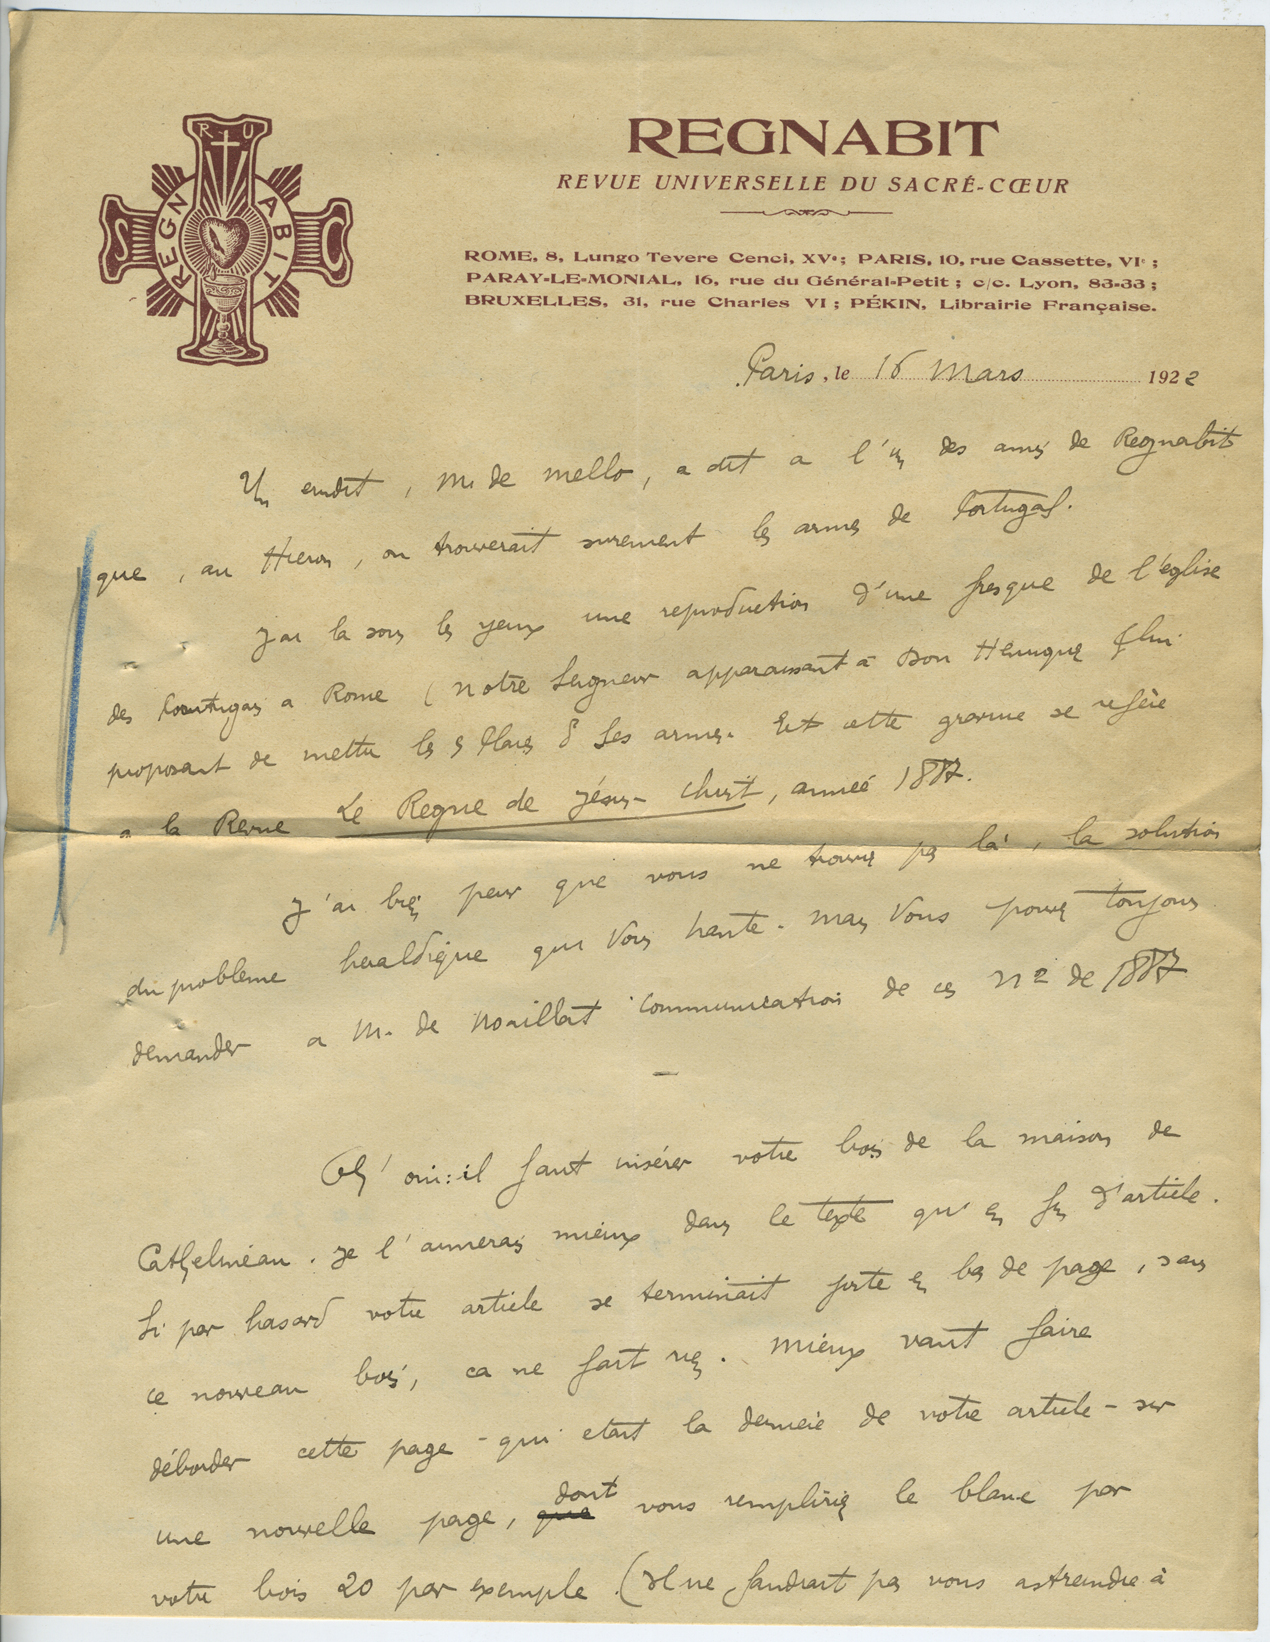 R U
REGNABIT
S C
REGNABIT
REVUE UNIVERSELLE DU SACRÉ-CŒUR
ROME, 8, Lungo Tevere Cenci, XVe; PARIS, 10, rue Cassette, VIe;
PARAY-LE-MONIAL, 16, rue du Général-Petit; c/c. Lyon, 83-33;
BRUXELLES, 31, rue Charles VI; PÉKIN, Librairie Française.
Paris, le 16 Mars 1922
Un erudit, M. de Mello, a dit a l'un des amis de Regnabit
que, au Hieron, on trouverait surement les armes de Portugal.
J'ai la sous les yeux une reproduction d'une fresque de l'eglise
des Portugais a Rome (Notre Seigneur apparaissant à Don Henrique & lui
proposant de mettre les 5 Plaies ds ses armes. Et cette gravure se refère
a la Revue Le Regne de Jésus-Christ, année 1887.
J'ai bien peur que vous ne trouviez pas là, la solution
du probleme heraldique qui vous hante. Mais vous pouvez toujours
demander a M. de Noaillat communication de ces nos de 1887
—
Oh! oui: il faut insérer votre bois de la maison de
Cathelineau. Je l'aimerais mieux dans le texte qu'en fin d'article.
Si par hasard votre article se terminait juste en bas de page, sans
ce nouveau bois, ca ne fait rien. Mieux vaut faire
déborder cette page - qui etait la derniere de votre article - sur
une nouvelle page, que dont vous rempliriez le blanc par
votre bois 20 par exemple. (Il ne faudrait pas vous astreindre à